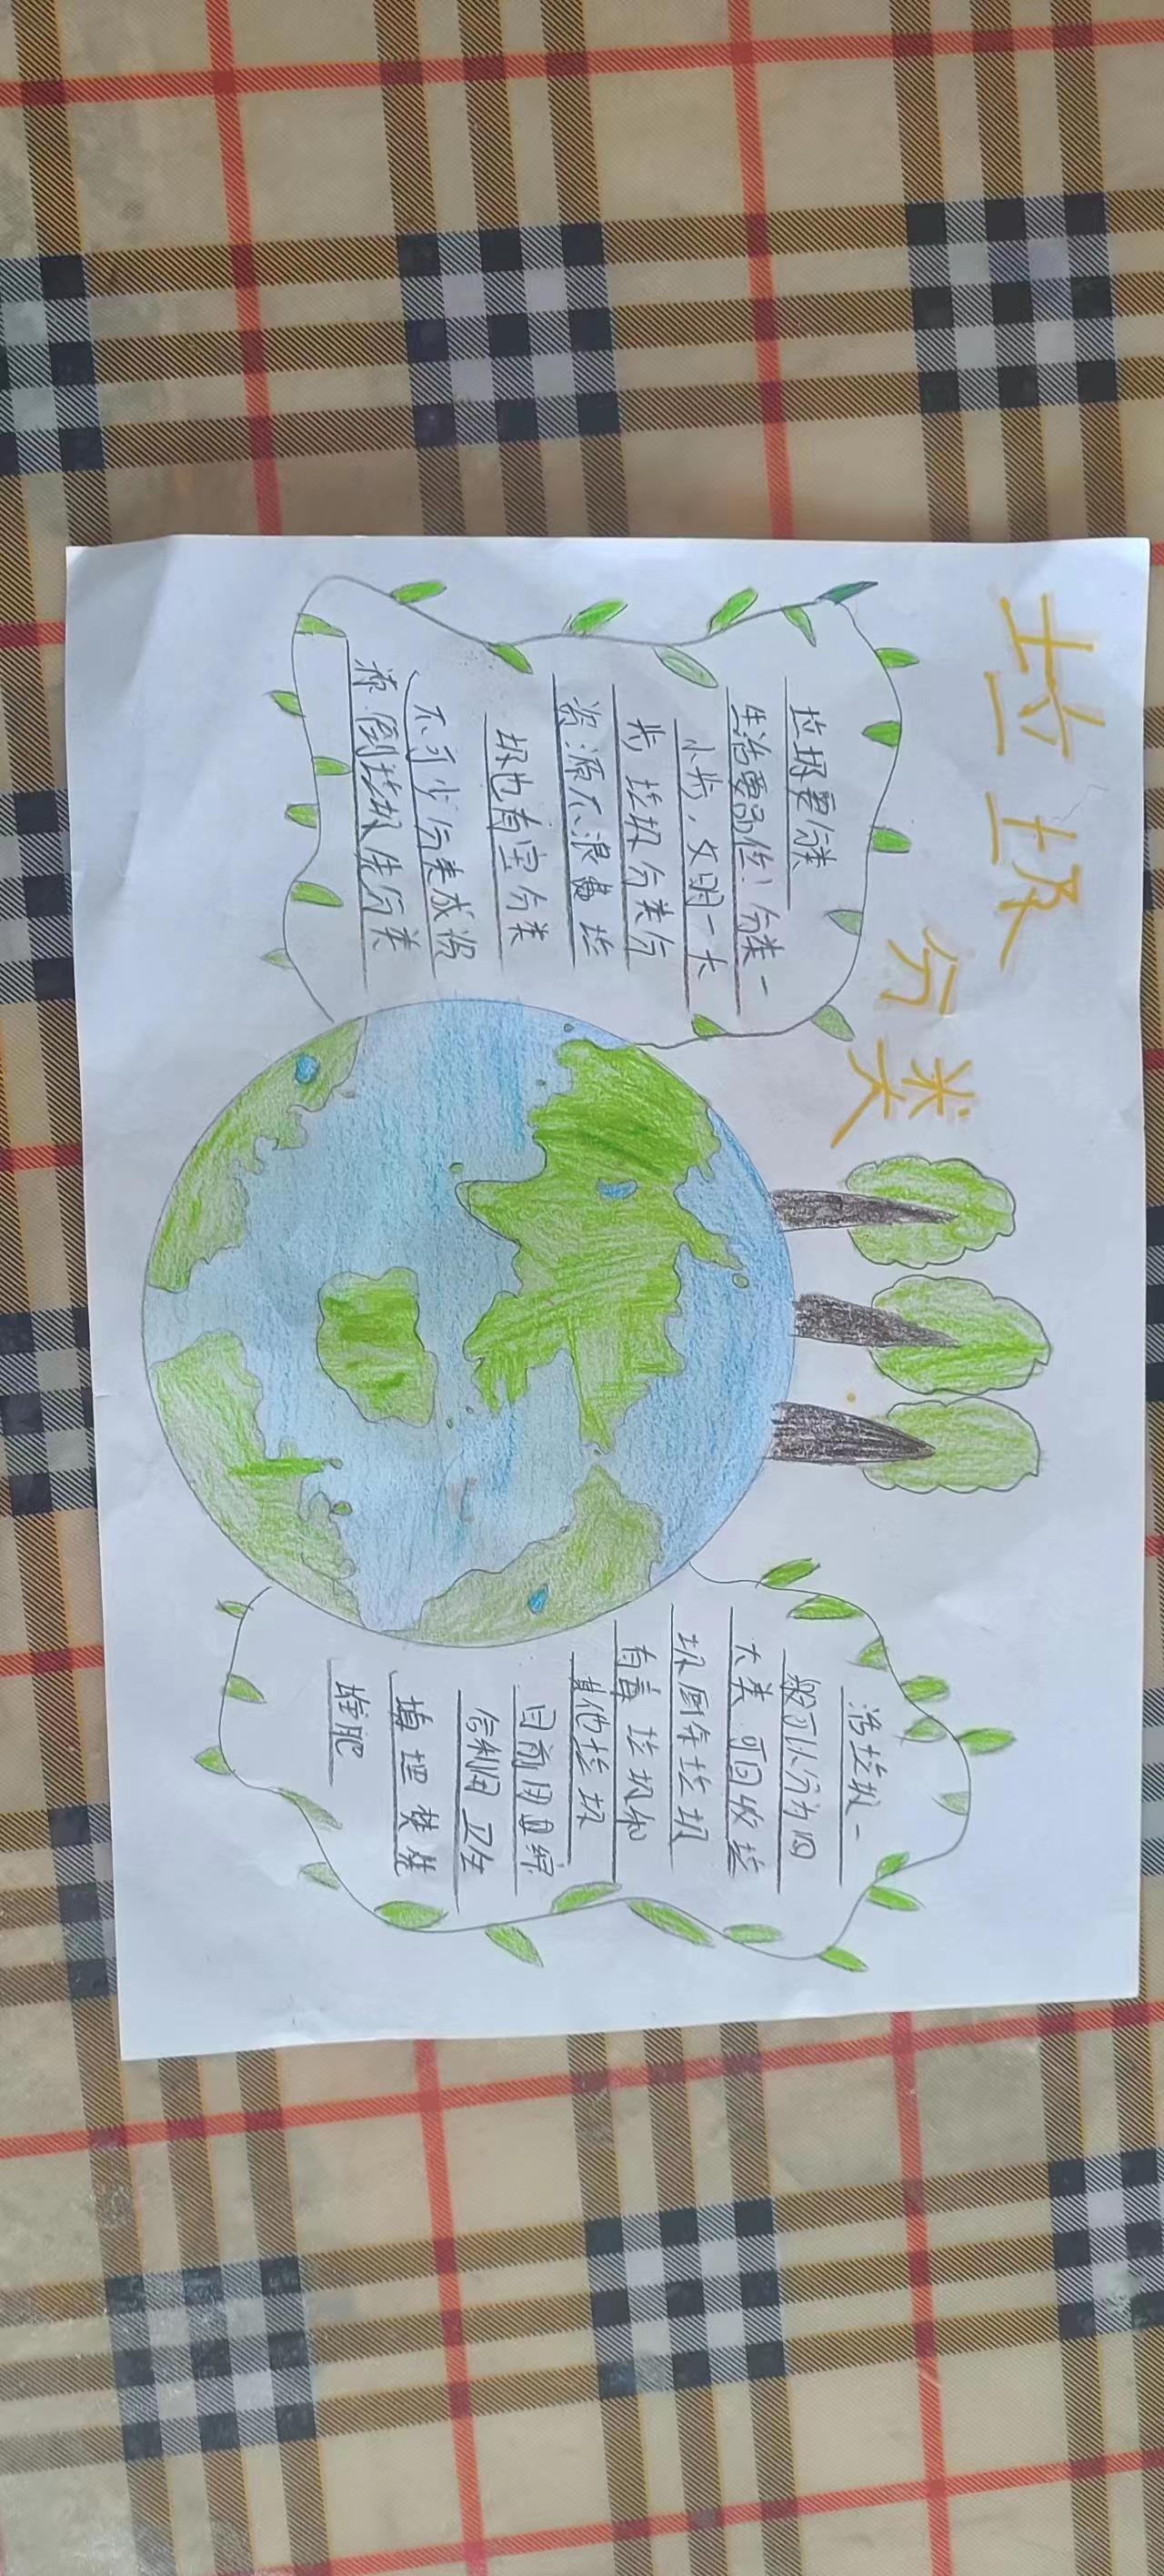 垃圾分类
垃圾要分类
生活要品位！分类一
小步，文明一大
步 垃圾分类分
资源不浪费 垃
圾也有宝分类
不可少分类成
倒垃圾先分类
活垃圾一
般可以分为四
大类 可回收垃
圾厨余垃圾
有毒垃圾和
其他垃圾
目前用且综
合利用 卫生
填埋 焚烧
堆肥